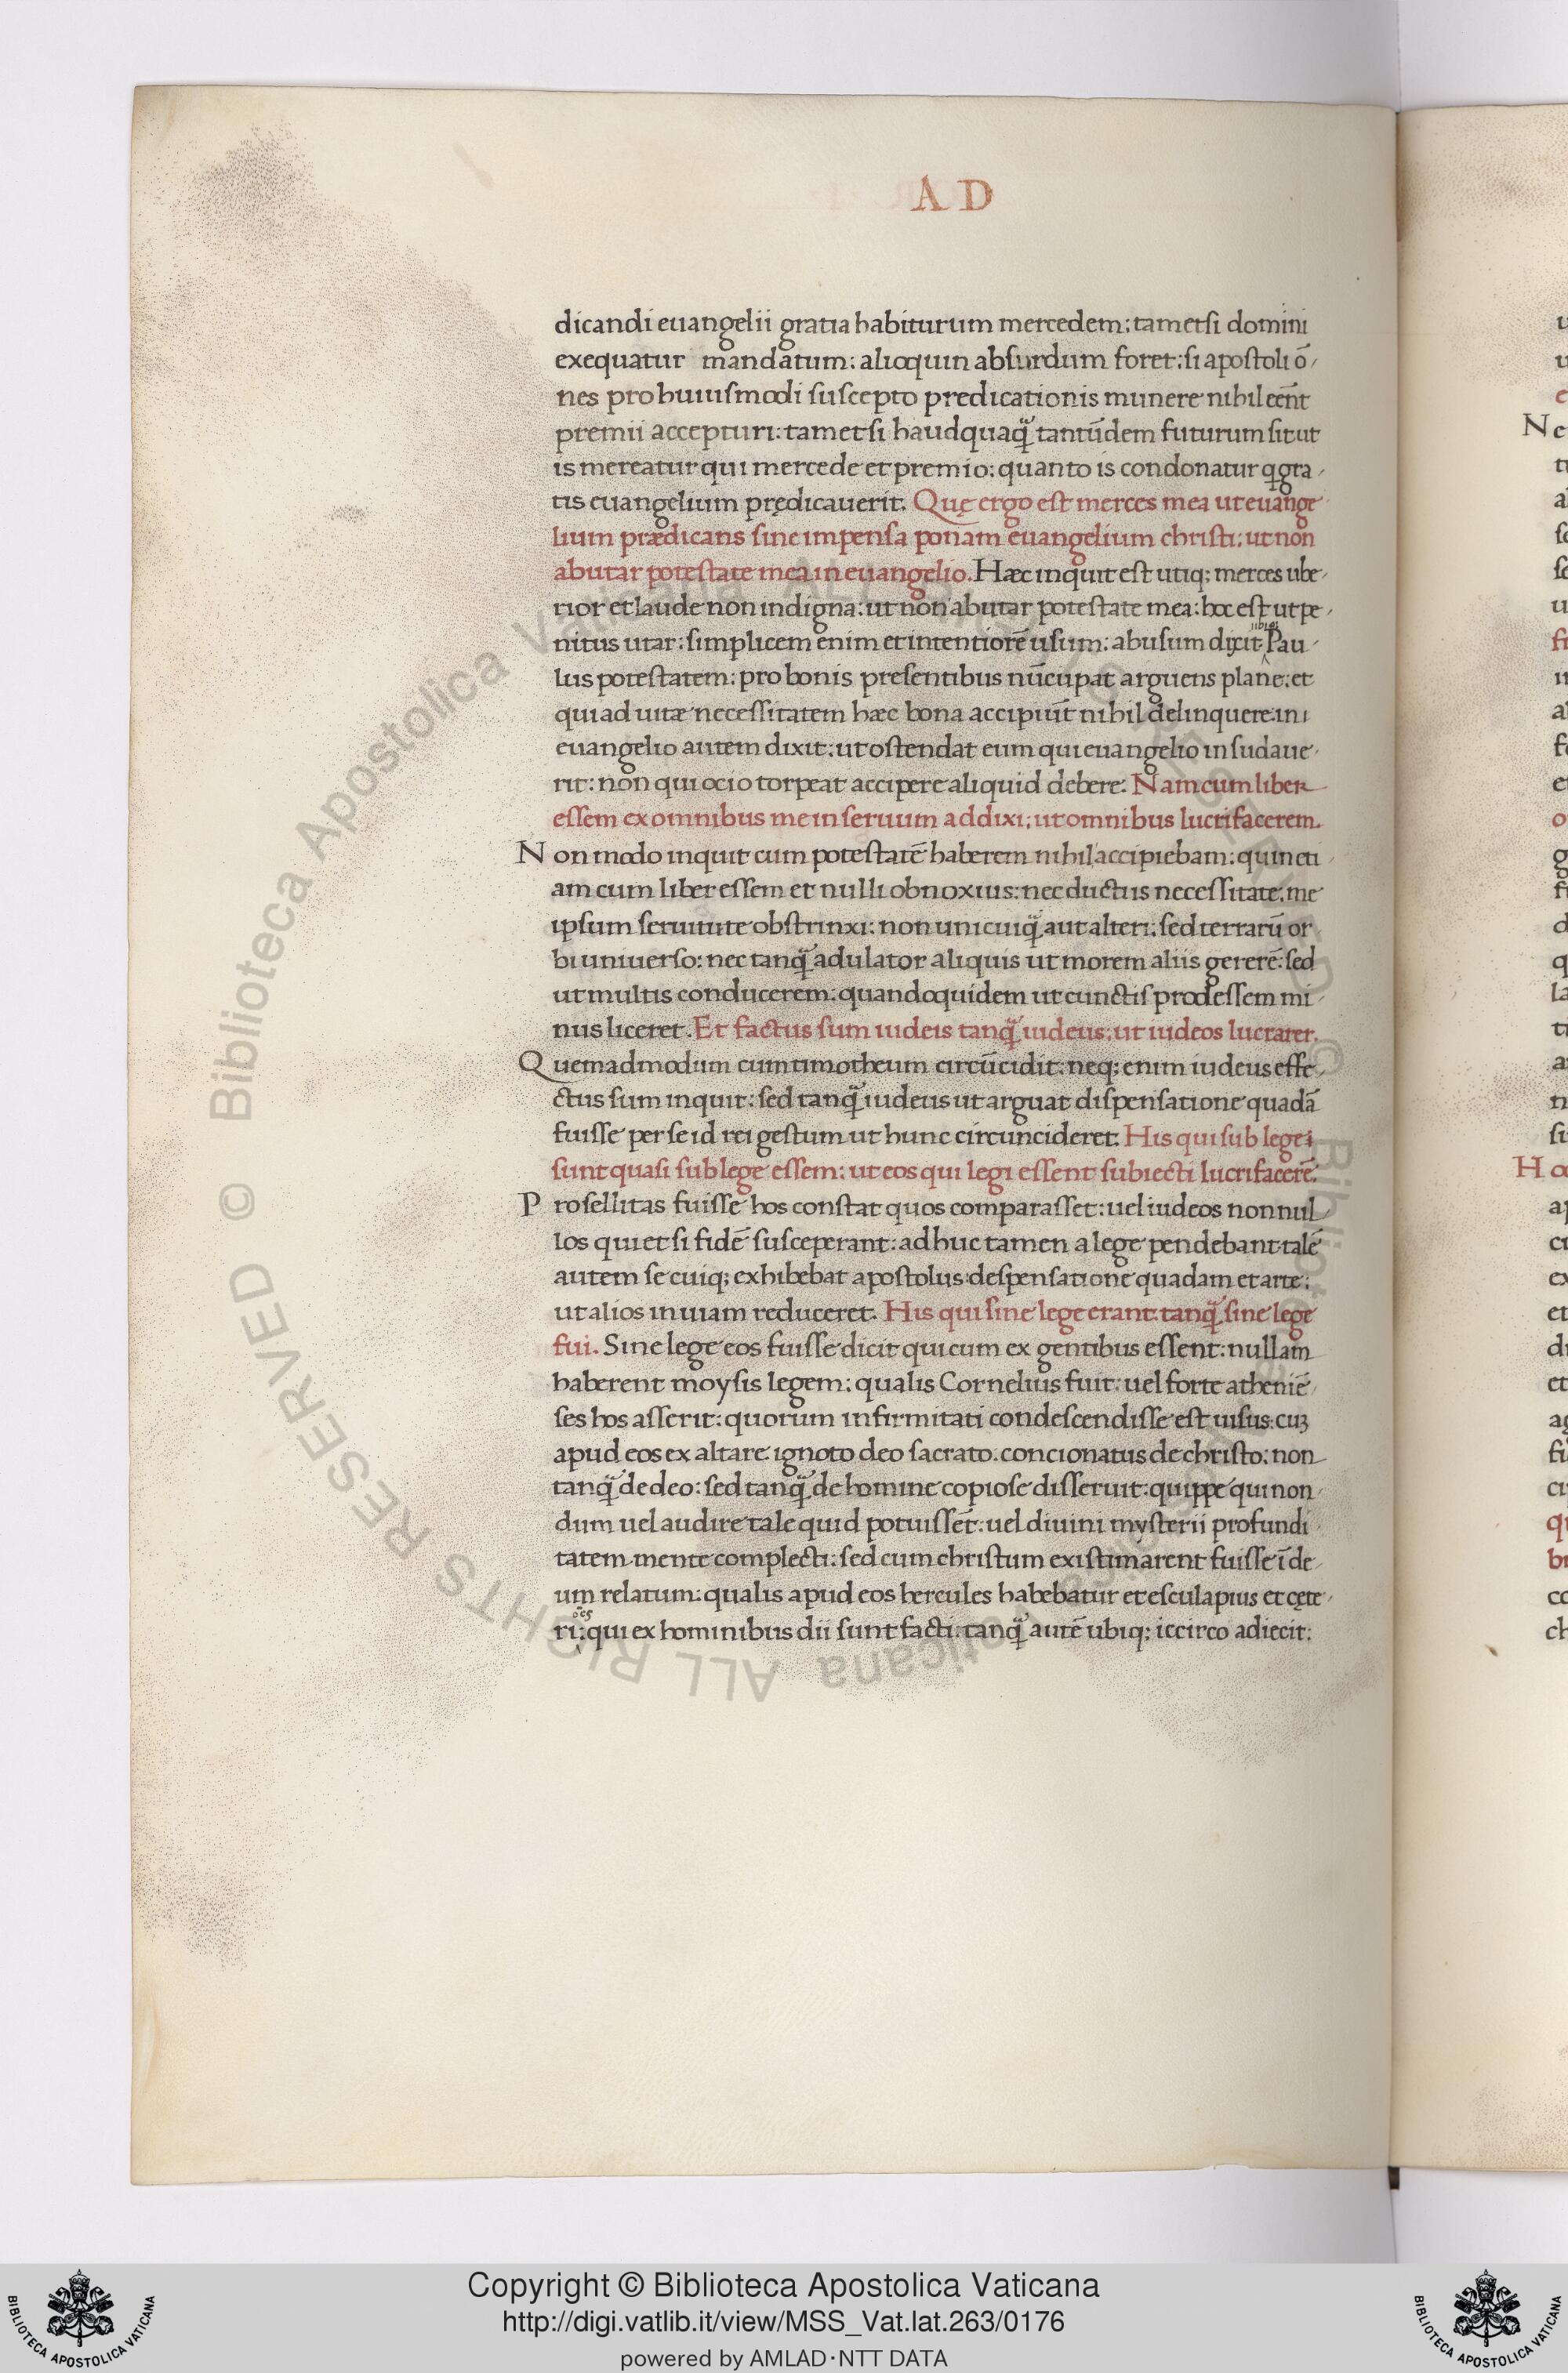 AD
dicandi euangelii gratia habiturum mercedem: tametsi domini
exequatur mandatum: alioquin absurdum foret: si apostoli ō
nes pro huiusmodi suscepto predicationis munere nihil eēnt
premii accepturi: tametsi haudquaq̃ tantūdem futurum sit ut
is mereatur qui mercede et premio: quanto is condonatur q gra
tis euangelium prędicauerit. Quę ergo est merces mea ut euange
lium prædicans sine impensa ponam euangelium christi: ut non
abutar potestate mea in euangelio. Hæc inquit est utiq; merces ube
rior et laude non indigna: ut non abutar potestate mea: hoc est ut pe
nitus utar: simplicem enim et intentiorē usum: abusum dixit. Pau
lus potestatem: pro bonis presentibus nūcupat arguens plane: et
qui ad uitæ necessitatem hæc bona accipiūt nihil delinquere: in
euangelio autem dixit: ut ostendat eum qui euangelio insudaue
rit: non qui ocio torpeat accipere aliquid debere. Nam cum liber
essem ex omnibus me in seruum addixi: ut omnibus lucrifacerem.
Non modo inquit cum potestatē haberem nihil accipiebam: quin eti
am cum liber essem et nulli obnoxius: nec ductus necessitate: me
ipsum seruitute obstrinxi: non unicuiq̃ aut alteri: sed terrarū or
bi uniuerso: nec tanq̃ adulator aliquis ut morem aliis gererē: sed
ut multis conducerem: quandoquidem ut cunctis prodessem mi
nus liceret. Et factus sum iudeis tanq̃ iudeus: ut iudeos lucrarer.
Quemadmodum cum timotheum circūcidit: neq; enim iudeus effe
ctus sum inquit: sed tanq̃ iudeus ut arguat dispensatione quadā
fuisse per se id rei gestum ut hunc circuncideret. His qui sub lege
sunt quasi sub lege essem: ut eos qui legi essent subiecti lucrifacerē.
Prosellitas fuisse hos constat quos comparasset: uel iudeos nonnul
los qui etsi fidē susceperant: adhuc tamen a lege pendebant: talē
autem se cuiq; exhibebat apostolus: despensatione quadam et arte:
ut alios in uiam reduceret. His qui sine lege erant: tanq̃ sine lege
fui. Sine lege eos fuisse dicit qui cum ex gentibus essent: nullam
haberent moysis legem: qualis Cornelius fuit: uel forte atheniē
ses hos asserit: quorum infirmitati condescendisse est uisus: cuȝ
apud eos ex altare ignoto deo sacrato: concionatus de christo: non
tanq̃ de deo: sed tanq̃ de homine copiose disseruit: quippe qui non
dum uel audire tale quid potuissēt: uel diuini mysterii profundi
tatem mente complecti: sed cum christum existimarent fuisse ī de
um relatum: qualis apud eos hercules habebatur et esculapius et cęte
ri: oēs qui ex hominibus dii sunt facti: tanq̃ autē ubiq; iccirco adiecit:
© Biblioteca Apostolica Vaticana ALL RIGHTS RESERVED
Copyright © Biblioteca Apostolica Vaticana
http://digi.vatlib.it/view/MSS_Vat.lat.263/0176
powered by AMLAD·NTT DATA
BIBLIOTECA APOSTOLICA VATICANA
BIBLIOTECA APOSTOLICA VATICANA